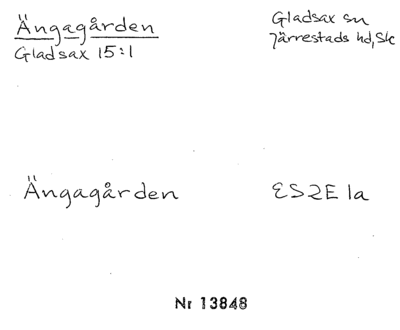 Ängagården
Gladsax 15:1
Gladsax sn
Järrestads hd, Sk
Ängagården
ES2E 1a
Nr 13848